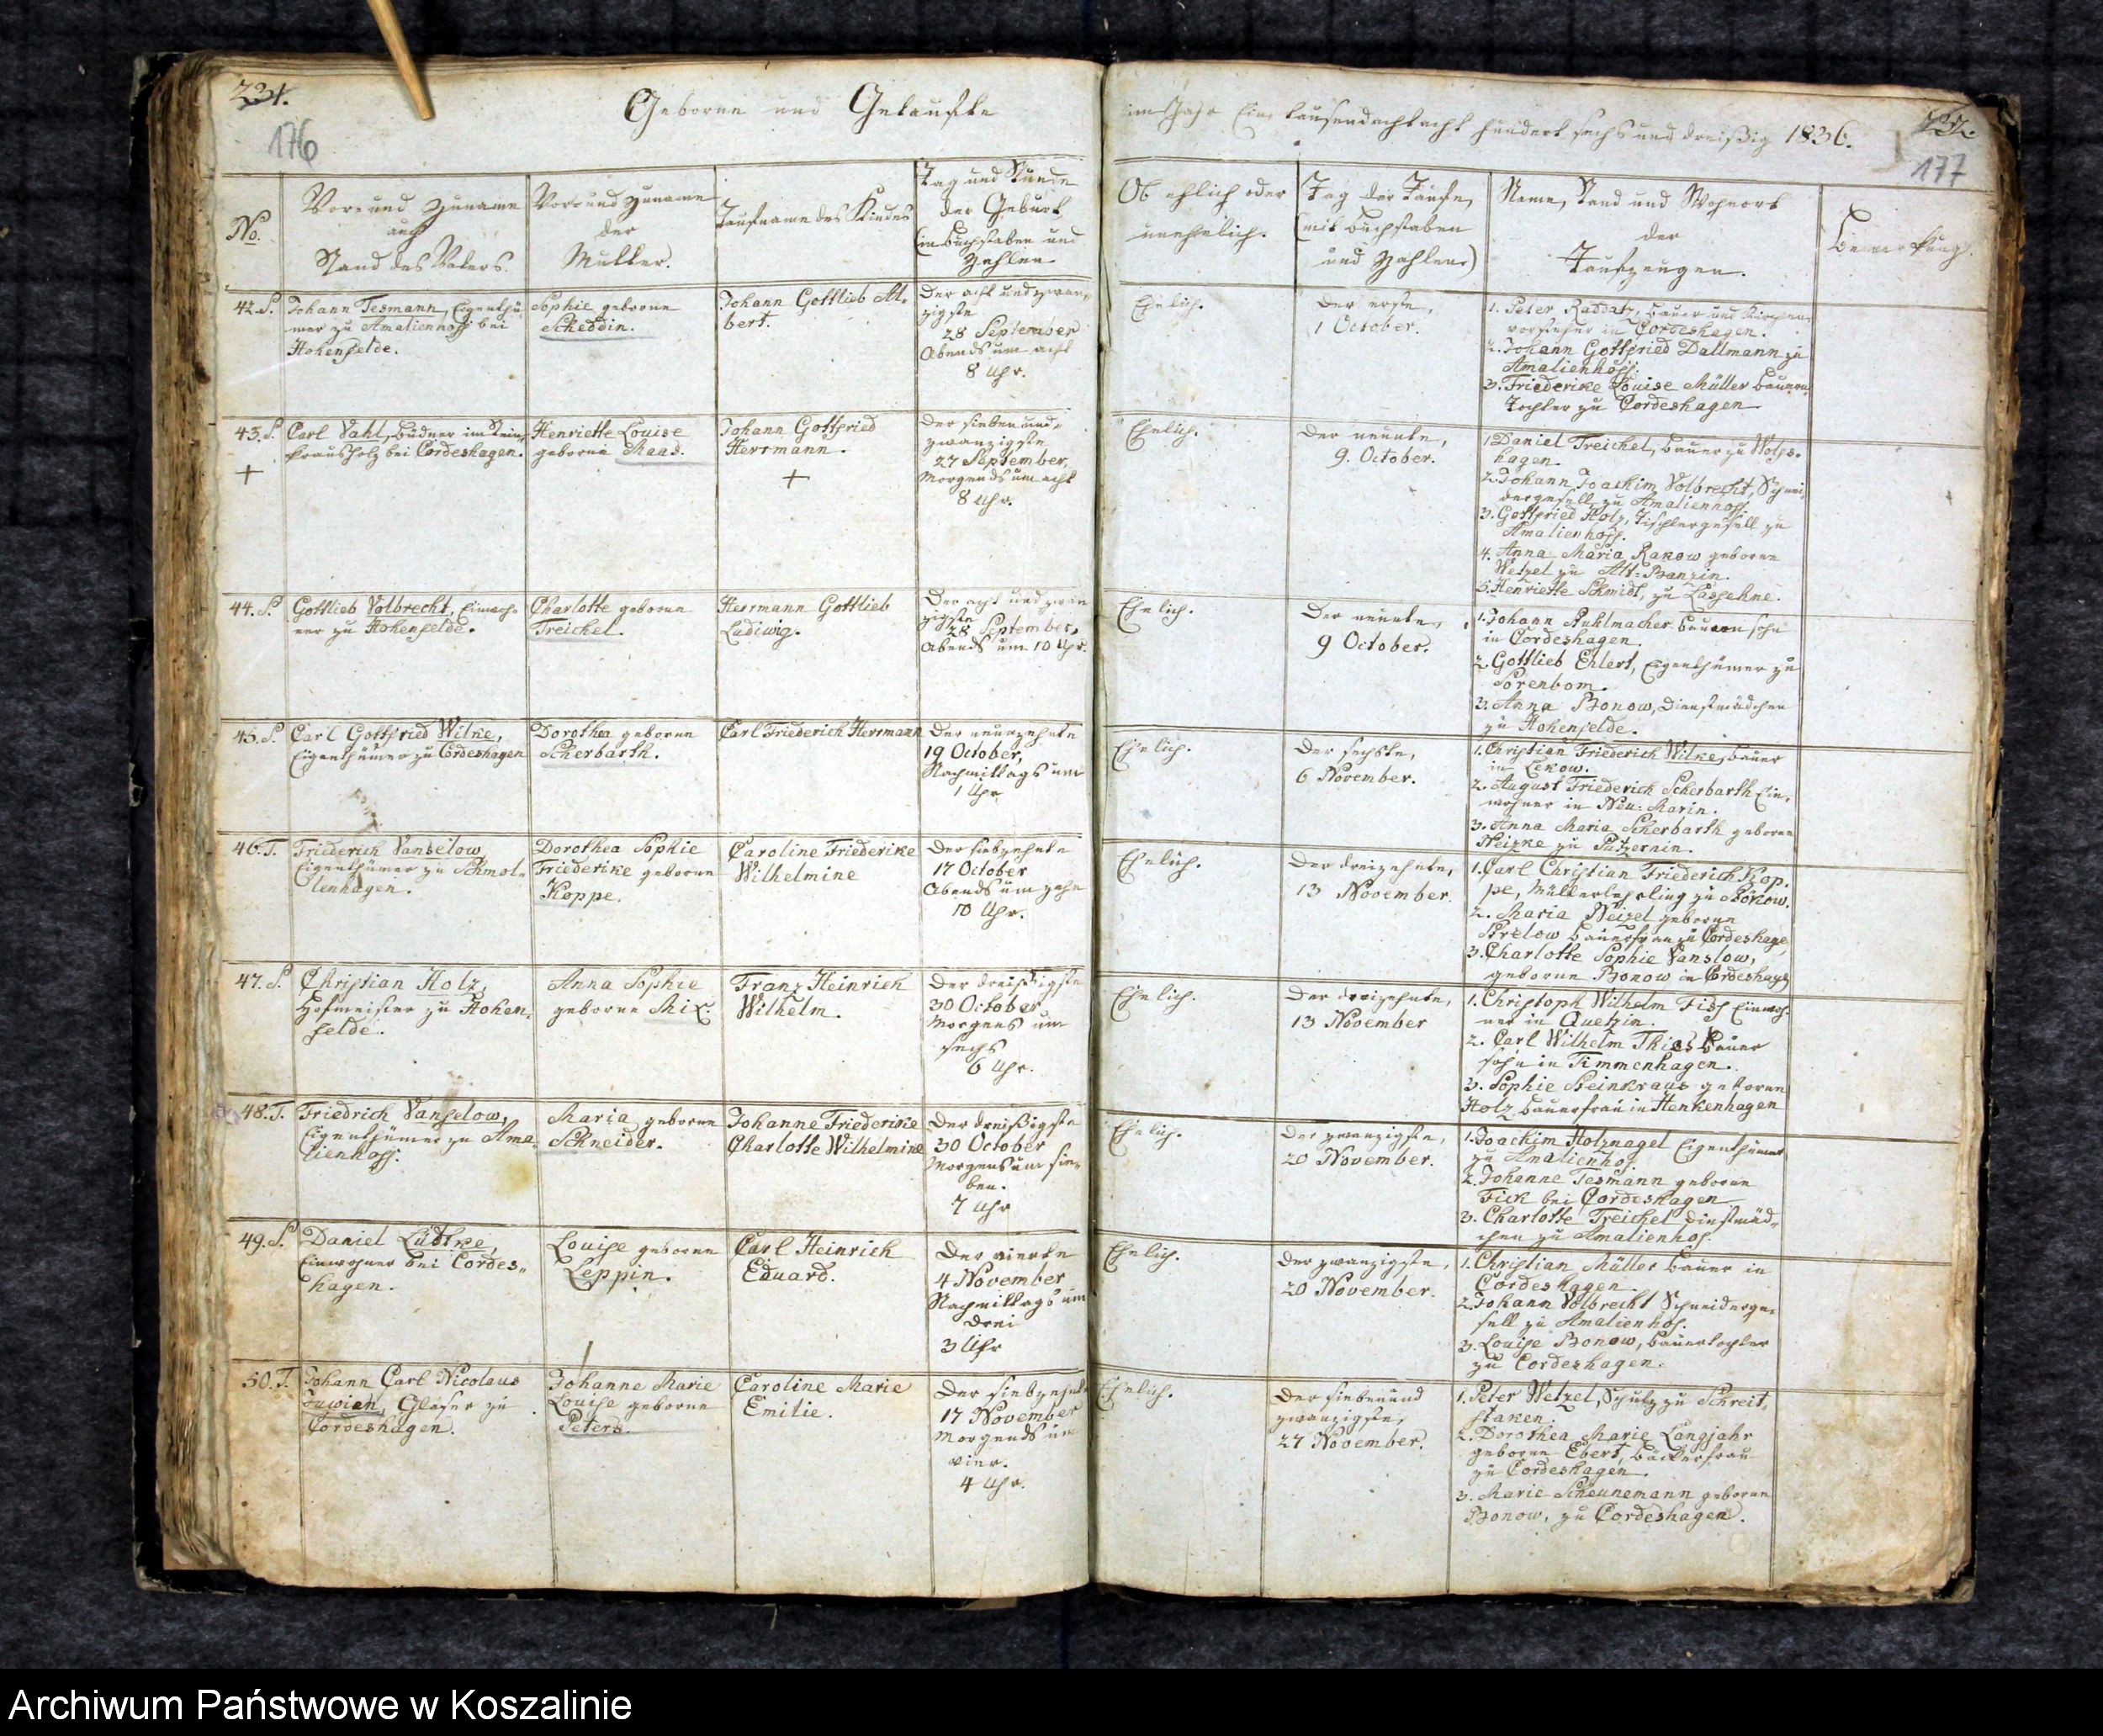 234.
176
Geborne und Getaufte
No.
Vor- und Zuname
auch
Stand des Vaters.
Vor- und Zuname
der
Mutter.
Taufname des Kindes
Tag und Stunde
der Geburt
(in Buchstaben und
Zahlen
42. S.
Johann Tesmann, Eigenthü-
mer zu Amalienhoff bei
Hohenfelde.
Sophie geborne
Scheddin.
Johann Gottlieb Al-
bert.
Der acht und zwan-
zigste
28 September
Abends um acht
8 Uhr.
43. S.
+
Carl Vahl, Büdner im Stein-
krausholz bei Cordeshagen.
Henriette Louise
geborne Maas.
Johann Gottfried
Herrmann.
+
Der sieben und-
zwanzigste
27 September,
Morgends um acht
8 Uhr.
44. S.
Gottlieb Volbrecht, Einwoh-
ner zu Hohenfelde.
Charlotte geborne
Treichel.
Herrmann Gottlieb
Ludiwig.
Der acht und zwan
zigste
28 September,
Abends um 10 Uhr.
45. S.
Carl Gottfried Wilke,
Eigenthümer zu Cordeshagen
Dorothea geborne
Scherbarth.
Carl Friederich Herrmann
Der neunzehnte
19 October,
Nachmittags um
1 Uhr
46. T.
Friederich Vanselow
Eigenthümer zu Schmol-
lenhagen.
Dorothea Sophie
Friederike geborne
Koppe.
Caroline Friederike
Wilhelmine
Der siebzehnte
17 October
Abends um zehn
10 Uhr.
47. S.
Christian Holz,
Hofmeister zu Hohen-
felde.
Anna Sophie
geborne Mix.
Franz Heinrich
Wilhelm.
Der dreißigste
30 October
Morgens um
sechs
6 Uhr.
48. T.
Friedrich Vanselow,
Eigenthümer zu Ama-
lienhoff.
Maria geborne
Schneider.
Johanne Friederike
Charlotte Wilhelmine
Der dreißigste
30 October
Morgens um sie-
ben.
7 Uhr
49. S.
Daniel Lüdtke,
Einwohner bei Cordes-
hagen.
Louise geborne
Leppin.
Carl Heinrich
Eduard.
Der vierte
4 November
Nachmittags um
drei
3 Uhr
50. T.
Johann Carl Nicolaus
Glaser zu
Cordeshagen.
Johanne Marie
Louise geborne
Peters.
Caroline Marie
Emilie.
Der siebzehnte
17 November
Morgends um
vier.
4 Uhr.
im Jahr Ein tausendachtacht hundert sechs und dreißig 1836.
177
Ob ehlich oder
unehelich.
Tag der Taufe,
(mit Buchstaben
und Zahlen)
Name, Stand und Wohnort
der
Taufzeugen.
Bemerkung.
Ehelich.
Der erste,
1 October.
1. Peter Raddatz, Bauer und Kirchen-
vorsteher in Cordeshagen.
2. Johann Gottfried Dallmann zu
Amalienhoff.
3. Friederike Louise Müller Bauern
Tochter zu Cordeshagen
Ehelich.
Der neunte,
9. October.
1 Daniel Treichel, Bauer zu Wolfs-
hagen.
2. Johann Joachim Volbrecht, Schnei-
dergesell zu Amalienhoff.
3. Gottfried Holz, Tischlergesell zu
Amalienhoff.
4. Anna Maria Rakow geborne
Wetzel zu Alt-Banzin.
5. Henriette Schmidt, zu Lassehne.
Ehelich.
Der neunte,
9 October.
1. Johann Stuhlmacher Bauernsohn
in Cordeshagen.
2. Gottlieb Ehlert, Eigenthümer zu
Sorenbom.
3. Anna Bonow, Dienstmädchen
zu Hohenfelde.
Ehelich.
Der sechste,
6 November.
1. Christian Friederich Wilke, Bauer
in Lekow.
2. August Friederich Scherbarth Ein-
wohner in Neu-Marin.
3. Anna Maria Scherbarth geborne
Neizke zu Putzernin.
Ehelich.
Der dreizehnte,
13 November.
1. Carl Christian Friederich Kop-
pe, Müllerlehrling zu
2. Maria Neizel geborne
Strelow Bauerfrau zu Cordeshage,
3. Charlotte Sophie Vanslow,
geborne Bonow in Cordeshage
Ehelich.
Der dreizehnte,
13 November
1. Christoph Wilhelm Einwoh-
ner in Quetzin.
2. Carl Wilhelm Thies Bauer
sohn in Timmenhagen.
3. Sophie Steinkraus geborne
Holz Bauerfrau in Henkenhagen
Ehelich.
Der zwanzigste,
20 November.
1. Joachim Holznagel Eigenthümer
zu Amalienhof.
2. Johanne Tesmann geborne
Fick bei Cordeshagen
3. Charlotte Treichel Dienstmäd-
chen zu Amalienhof.
Ehelich.
Der zwanzigste,
20 November.
1. Christian Müller Bauer in
Cordeshagen.
2. Johann Volbrecht Schneiderge-
sell zu Amalienhof.
3. Louise Bonow, Bauertochter
zu Cordeshagen.
Ehelich.
Der siebenund
zwanzigste,
27 November.
1. Peter Wetzel, Schulz zu Schreit-
staken.
2. Dorothea Marie Langjahr
geborne Ebert, Bäckerfrau
zu Cordeshagen.
3. Marie Scheunemann geborne
Bonow, zu Cordeshagen.
Archiwum Państwowe w Koszalinie